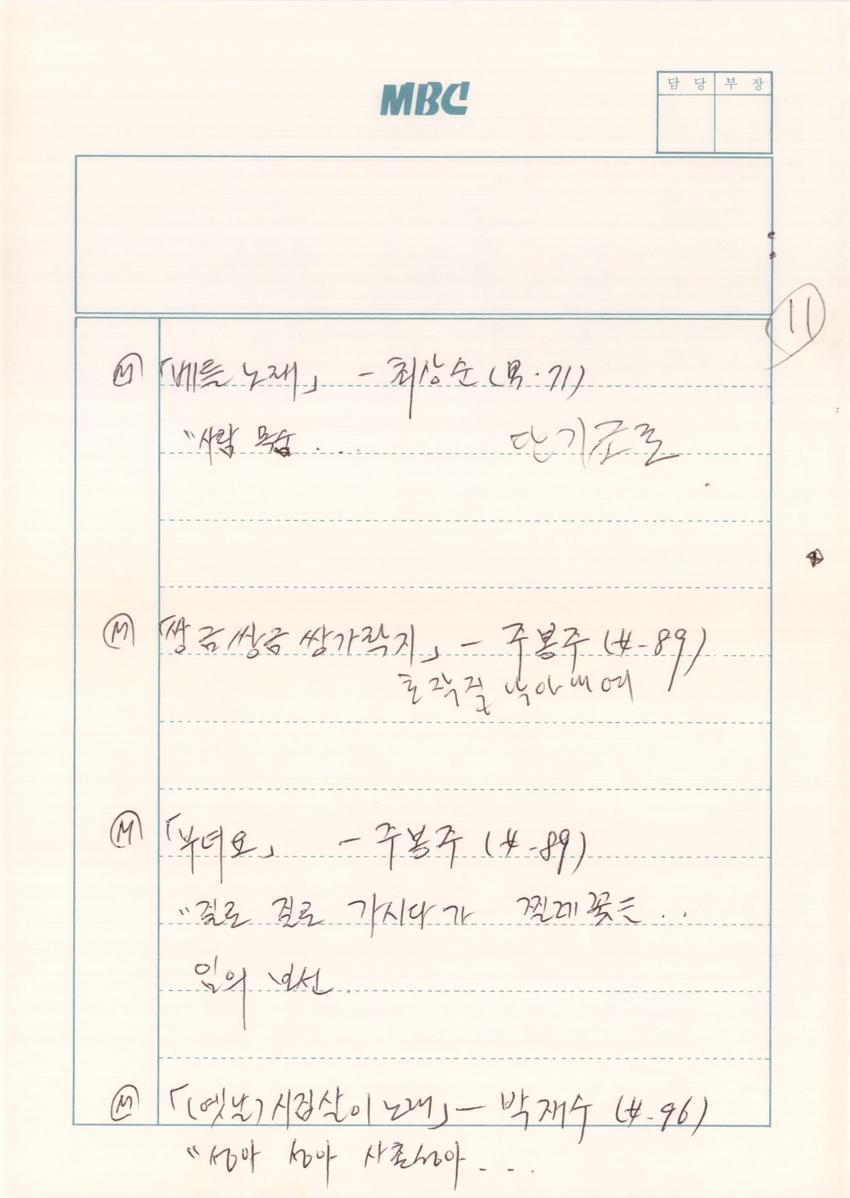 MBC
담당 부장
11
Ⓜ 「베틀노래」 - 최상순 (男·71)
"사람 목숨 ...
Ⓜ 「쌍금쌍금 쌍가락지」 - 주봉주 (女-89)
호작질 닦아내여
Ⓜ 「부녀요」 - 주봉주 (女-89)
"질로 질로 가시다가 찔레꽃은 ..
임의 버선
Ⓜ 「(옛날) 시집살이노래」 - 박재수 (女-96)
"성아 성아 사촌성아 ....